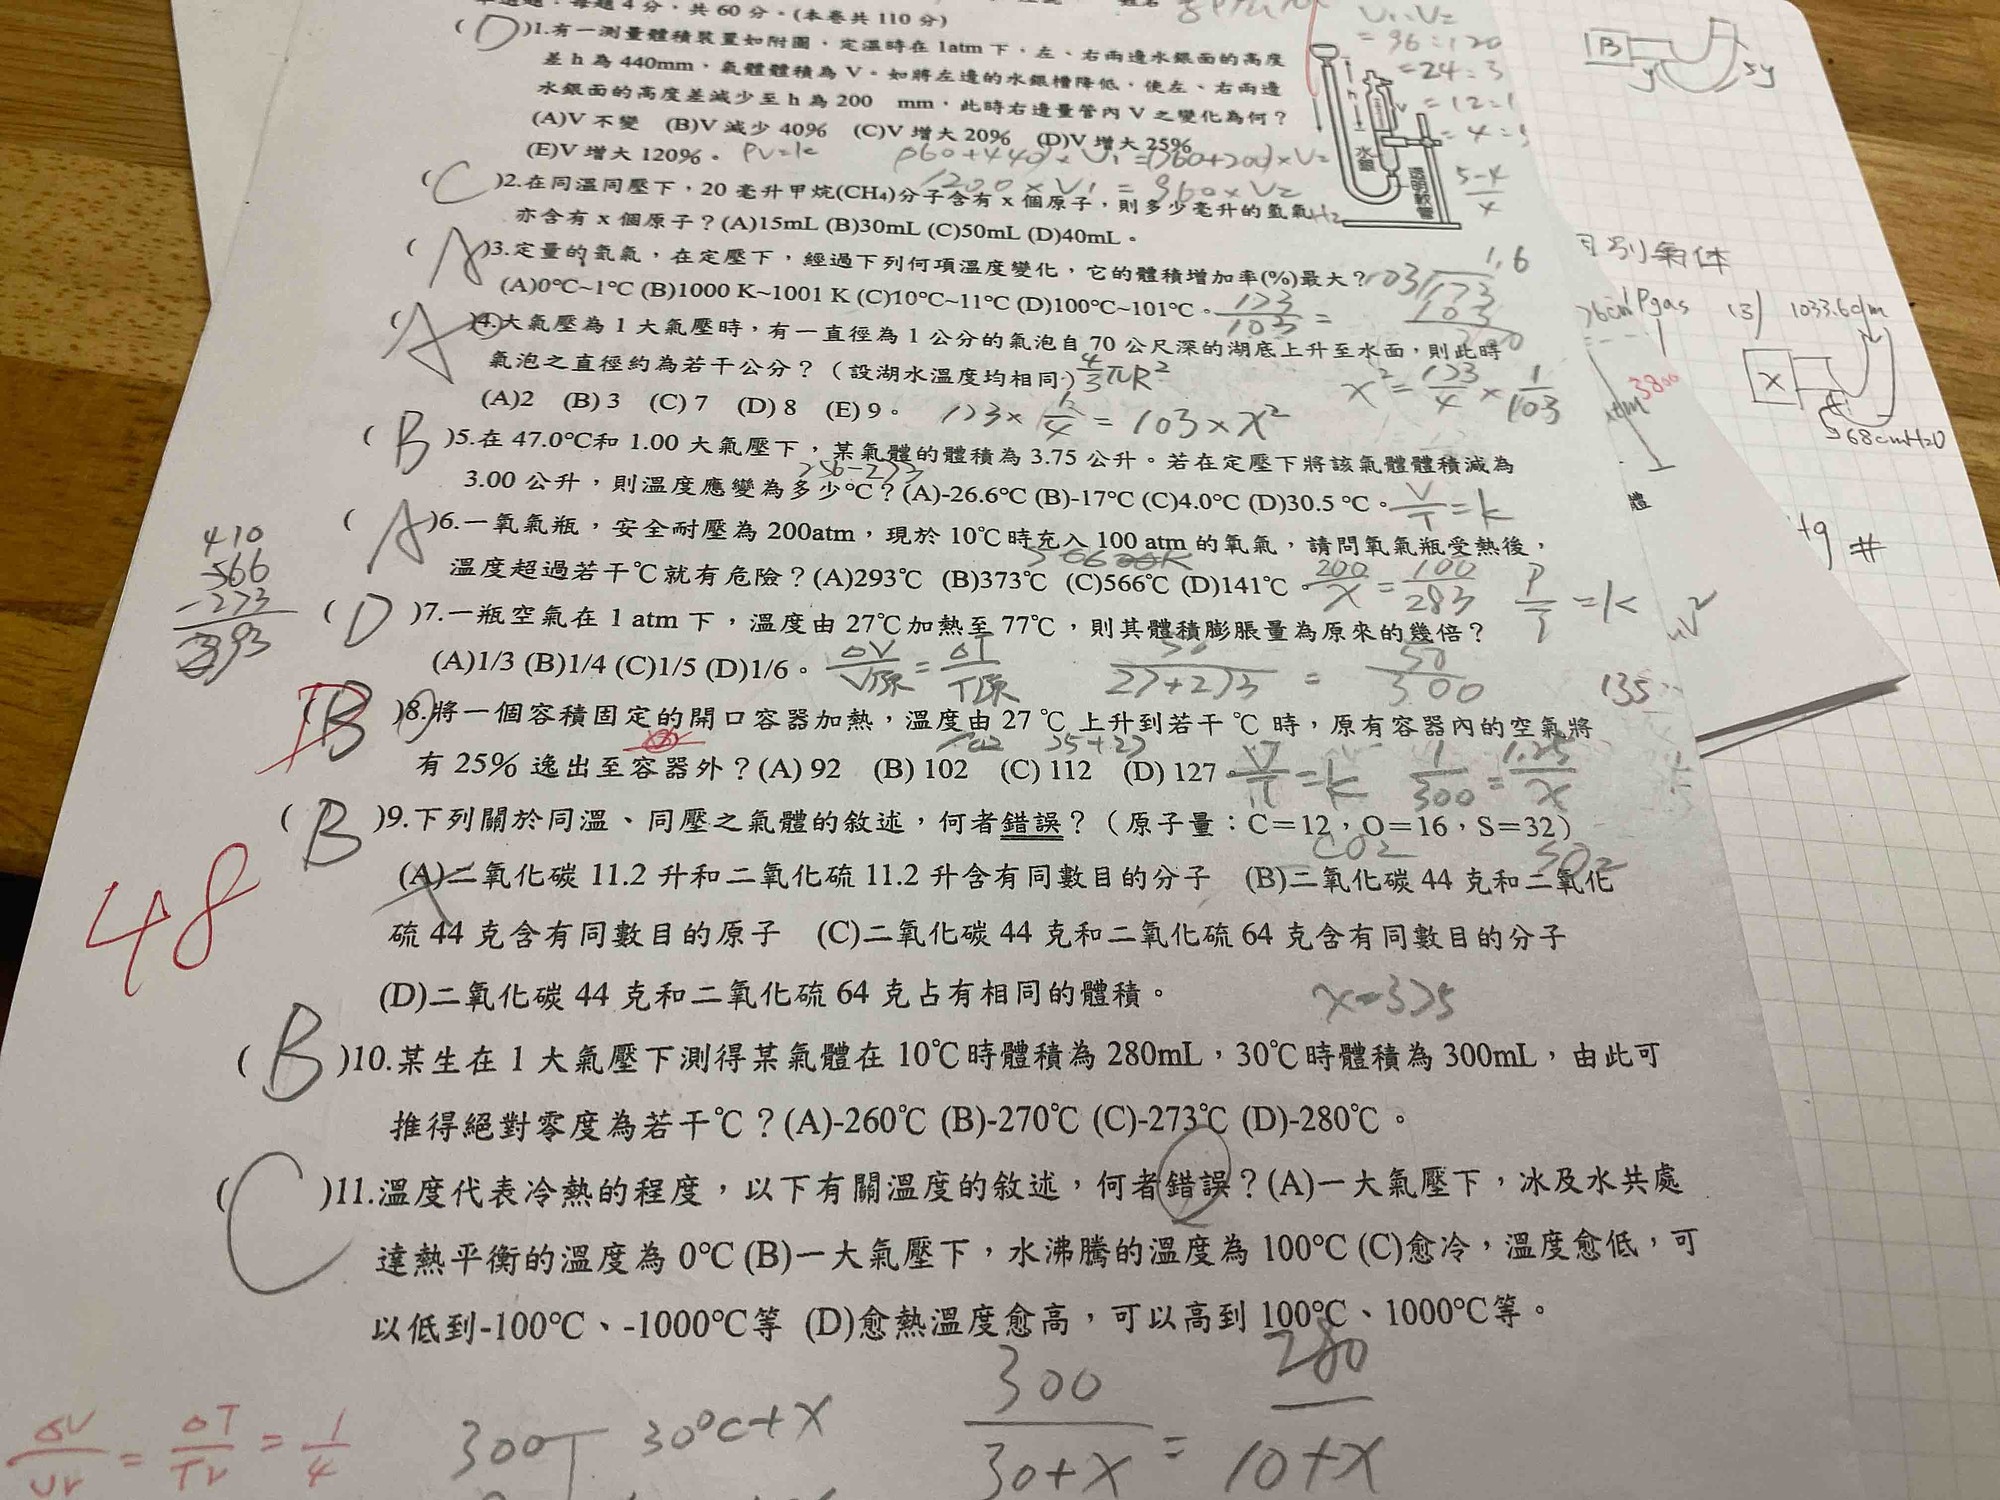 每題 4 分，共 60 分。(本卷共 110 分)
(D)1.有一測量體積裝置如附圖，定溫時在 1atm 下，左、右兩邊水銀面的高度
差 h 為 440mm，氣體體積為 V。如將左邊的水銀槽降低，使左、右兩邊
水銀面的高度差減少至 h 為 200 mm，此時右邊量管內 V 之變化為何？
(A)V 不變 (B)V 減少 40% (C)V 增大 20% (D)V 增大 25%
(E)V 增大 120%。 PV=k
1200×V1 = 960×V2
水銀
透明軟管
(C)2.在同溫同壓下，20 毫升甲烷(CH₄)分子含有 x 個原子，則多少毫升的氫氣H2
亦含有 x 個原子？(A)15mL (B)30mL (C)50mL (D)40mL。
(A)3.定量的氦氣，在定壓下，經過下列何項溫度變化，它的體積增加率(%)最大？
(A)0℃~1℃ (B)1000 K~1001 K (C)10℃~11℃ (D)100℃~101℃。
(A)4.大氣壓為 1 大氣壓時，有一直徑為 1 公分的氣泡自 70 公尺深的湖底上升至水面，則此時
氣泡之直徑約為若干公分？（設湖水溫度均相同）4/3πR²
(A)2 (B) 3 (C) 7 (D) 8 (E) 9。
(B)5.在 47.0℃和 1.00 大氣壓下，某氣體的體積為 3.75 公升。若在定壓下將該氣體體積減為
256-273
3.00 公升，則溫度應變為多少℃？(A)-26.6℃ (B)-17℃ (C)4.0℃ (D)30.5 ℃。 V/T=k
(A)6.一氧氣瓶，安全耐壓為 200atm，現於 10℃時充入 100 atm 的氧氣，請問氧氣瓶受熱後，
溫度超過若干℃就有危險？(A)293℃ (B)373℃ (C)566℃ (D)141℃。 200/x = 100/283 P/T=k
410
566
-273
293
(D)7.一瓶空氣在 1 atm 下，溫度由 27℃加熱至 77℃，則其體積膨脹量為原來的幾倍？
(A)1/3 (B)1/4 (C)1/5 (D)1/6。 ΔV/V原 = ΔT/T原 50/27+273 = 50/300
(B)8.將一個容積固定的開口容器加熱，溫度由 27 ℃ 上升到若干 ℃ 時，原有容器內的空氣將
有 25% 逸出至容器外？(A) 92 (B) 102 (C) 112 (D) 127。 V/T=k 1/300=1.25/x
(B)9.下列關於同溫、同壓之氣體的敘述，何者錯誤？（原子量：C＝12，O＝16，S＝32）
CO2 SO2
(A)二氧化碳 11.2 升和二氧化硫 11.2 升含有同數目的分子 (B)二氧化碳 44 克和二氧化
硫 44 克含有同數目的原子 (C)二氧化碳 44 克和二氧化硫 64 克含有同數目的分子
(D)二氧化碳 44 克和二氧化硫 64 克占有相同的體積。
x=375
48
(B)10.某生在 1 大氣壓下測得某氣體在 10℃時體積為 280mL，30℃時體積為 300mL，由此可
推得絕對零度為若干℃？(A)-260℃ (B)-270℃ (C)-273℃ (D)-280℃。
(C)11.溫度代表冷熱的程度，以下有關溫度的敘述，何者錯誤？(A)一大氣壓下，冰及水共處
達熱平衡的溫度為 0℃ (B)一大氣壓下，水沸騰的溫度為 100℃ (C)愈冷，溫度愈低，可
以低到-100℃、-1000℃等 (D)愈熱溫度愈高，可以高到 100℃、1000℃等。
30℃+x
300/30+x = 280/10+x
ΔV/Vr = ΔT/Tr = 1/4
B
y
5y
Pgas
(3)
1033.6cm
X
68cmH2O